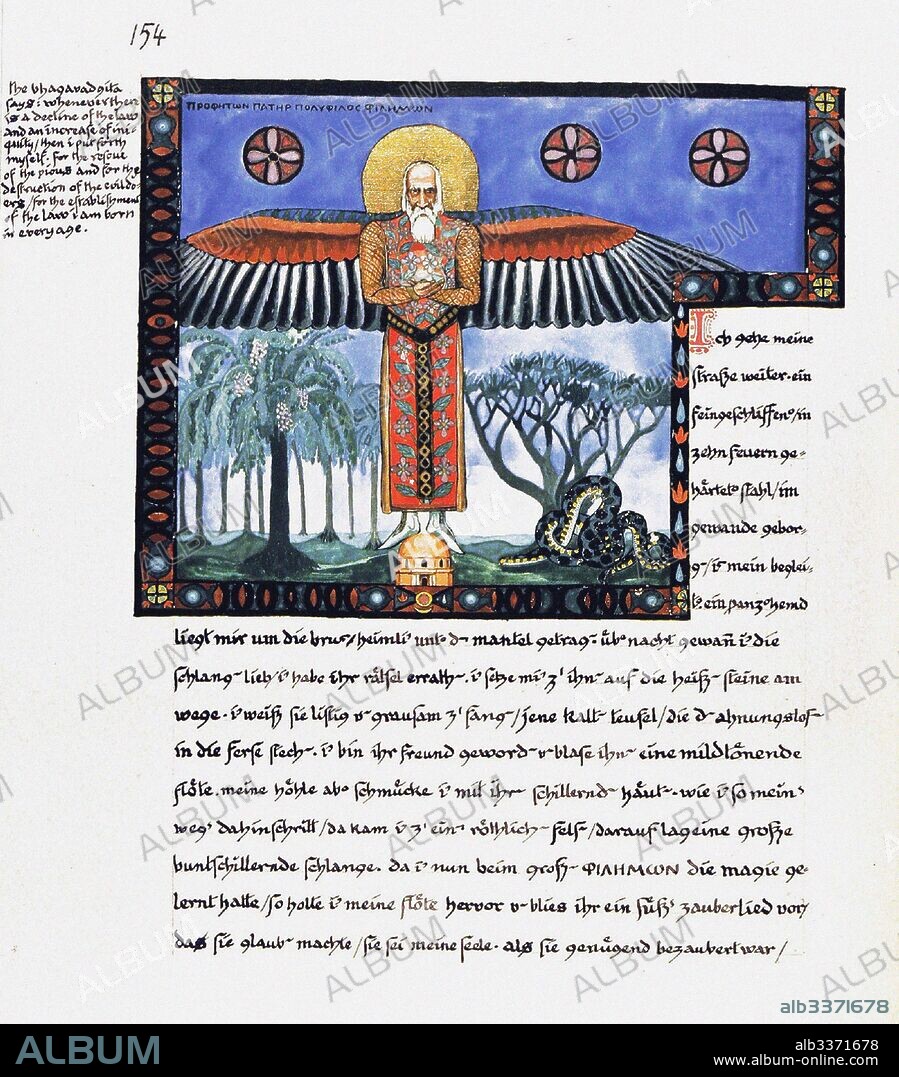 154
the bhagavadgita
says: whenever there
is a decline of the law
and an increase of ini-
quity / then i put forth
myself. for the rescue
of the pious and for the
destruction of the evildo-
ers / for the establishment
of the law i am born
in every age.
ΠΡΟΦΗΤΩΝ ΠΑΤΗΡ ΠΟΛΥΦΙΛΟΣ ΦΙΛΗΜΩΝ
Ich gehe meine
straße weiter. ein
feingeschliffen / in
zehn feuern ge-
härtet stahl / im
gewande gebor-
mein beglei-
ein panzerhemd
liegt mir um die brust / heimli unt d mantel getrag. üb nacht gewan i die
schlang lieb / i habe ihr rätsel errath. i setze mi z' ihn auf die heiß steine am
wege. i weiß sie listig v grausam z' fang / jene kalt teufel / die d ahnungslos
in die ferse stech. i bin ihr freund geword v blase ihn eine mildtönende
flöte. meine höhle ab schmücke i mit ihr schillernd häut. wie i so mein
weg dahinschritt / da kam i z' ein röthlich fels / darauf lag eine große
buntschillernde schlange. da i nun beim groß ΦΙΛΗΜΩΝ die magie ge-
lernt hatte / so holte i meine flöte hervor v blies ihr ein süß zauberlied vor
das sie glaub machte / sie sei meine seele. als sie genügend bezaubert war /
alb3371678
ALBUM
alb3371678
www.album-online.com